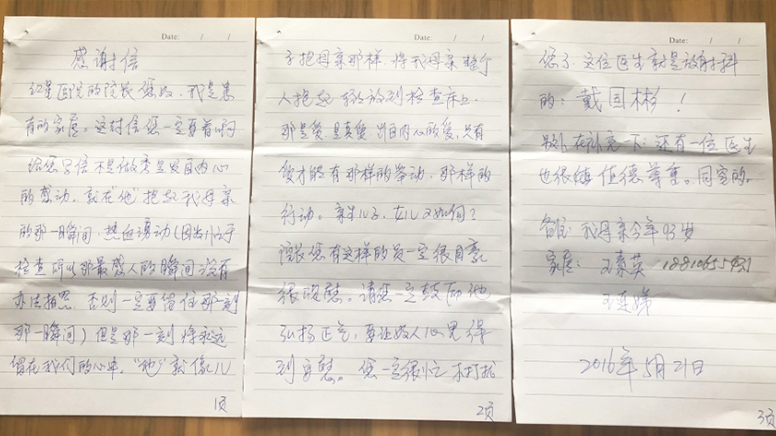 Date: / /
感谢信
红星医院的院长您好，我是患
者的家属。这封信您一定要看啊
给您写信不是做秀是发自内心
的感动，就在“他”抱起我母亲
的那一瞬间，热血涌动（因为忙于
检查所以那最感人的瞬间没有
办法拍照。否则一定要留住那一刻
那一瞬间）但是那一刻将永远
留在我们的心中。“他”就像儿
1页
Date: / /
子抱母亲那样，将我母亲整个
人抱起轻放到检查床上。
那是爱是真爱出自内心的爱，只有
爱才能有那样的举动，那样的
行动。亲生儿子、女儿又如何？
院长您有这样的员一定很自豪
很欣慰。请您一定鼓励他
弘扬正气，要让好人心里得
到安慰。您一定很忙不打扰
2页
Date: / /
您了，这位医生就是放射科
的：戴国彬！
另外在补充一下：还有一位医生
也很值得尊重。同室的。
我母亲今年93岁
家属：王素英
2016年5月21日
3页